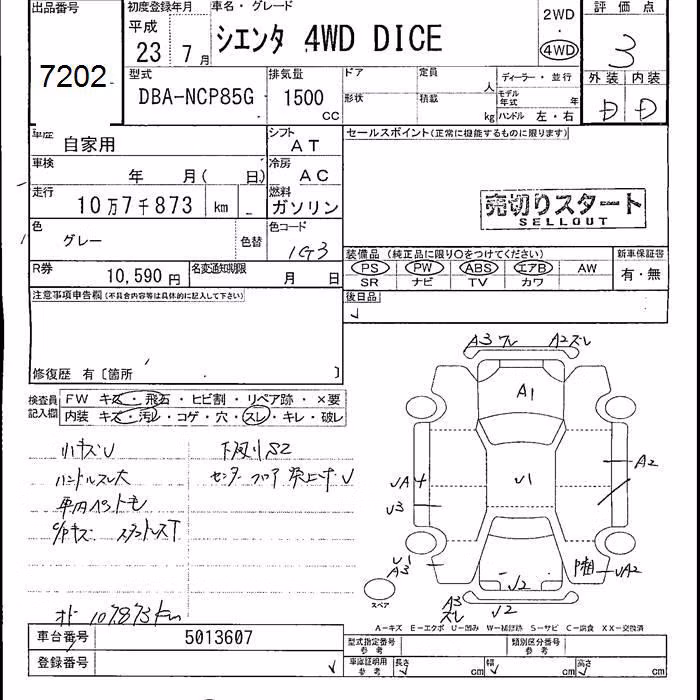 出品番号
7202
初度登録年月
平成
23 7月
車名・グレード
シエンタ 4WD DICE
2WD
・
4WD
評価点
3
外装 内装
D D
型式
DBA-NCP85G
排気量
1500
CC
ドア
定員
人
形状
積載
kg
ディーラー・並行
モデル年式 年
ハンドル 左・右
車歴
自家用
シフト
AT
車検
年 月( 日)
冷房
AC
走行
10万7千873 km
燃料
ガソリン
色
グレー
色替
色コード
1G3
R券
10,590円
名変通知期限
月 日
セールスポイント(正常に機能するものに限ります)
売切りスタート
SELLOUT
装備品(純正品に限り○をつけてください)
PS PW ABS エアB AW
SR ナビ TV カワ
新車保証書
有・無
後日品
注意事項申告欄(不具合内容等は具体的に記入して下さい)
修復歴 有〔箇所 〕
検査員記入欄
FW キズ・飛石・ヒビ割・リペア跡・×要
内装 キズ・汚レ・コゲ・穴・スレ・キレ・破レ
小キズU
ハンドルスレ大
車内ペットモ
C/Pキズ
下廻りS2
センターフロア突上ゲU
オドー 107873km
A3 ワレ
A2ズレ
A1
U1
UA
U3
A2
U1
A3
UA2
スペア
A3
ズレ
U2
U2
A-キズ E-エクボ U-凹み W-補修跡 S-サビ C-腐食 XX-交換済
車台番号
5013607
登録番号
型式指定番号
参考
類別区分番号
参考
車庫証明用
参考
長さ cm
幅 cm
高さ cm